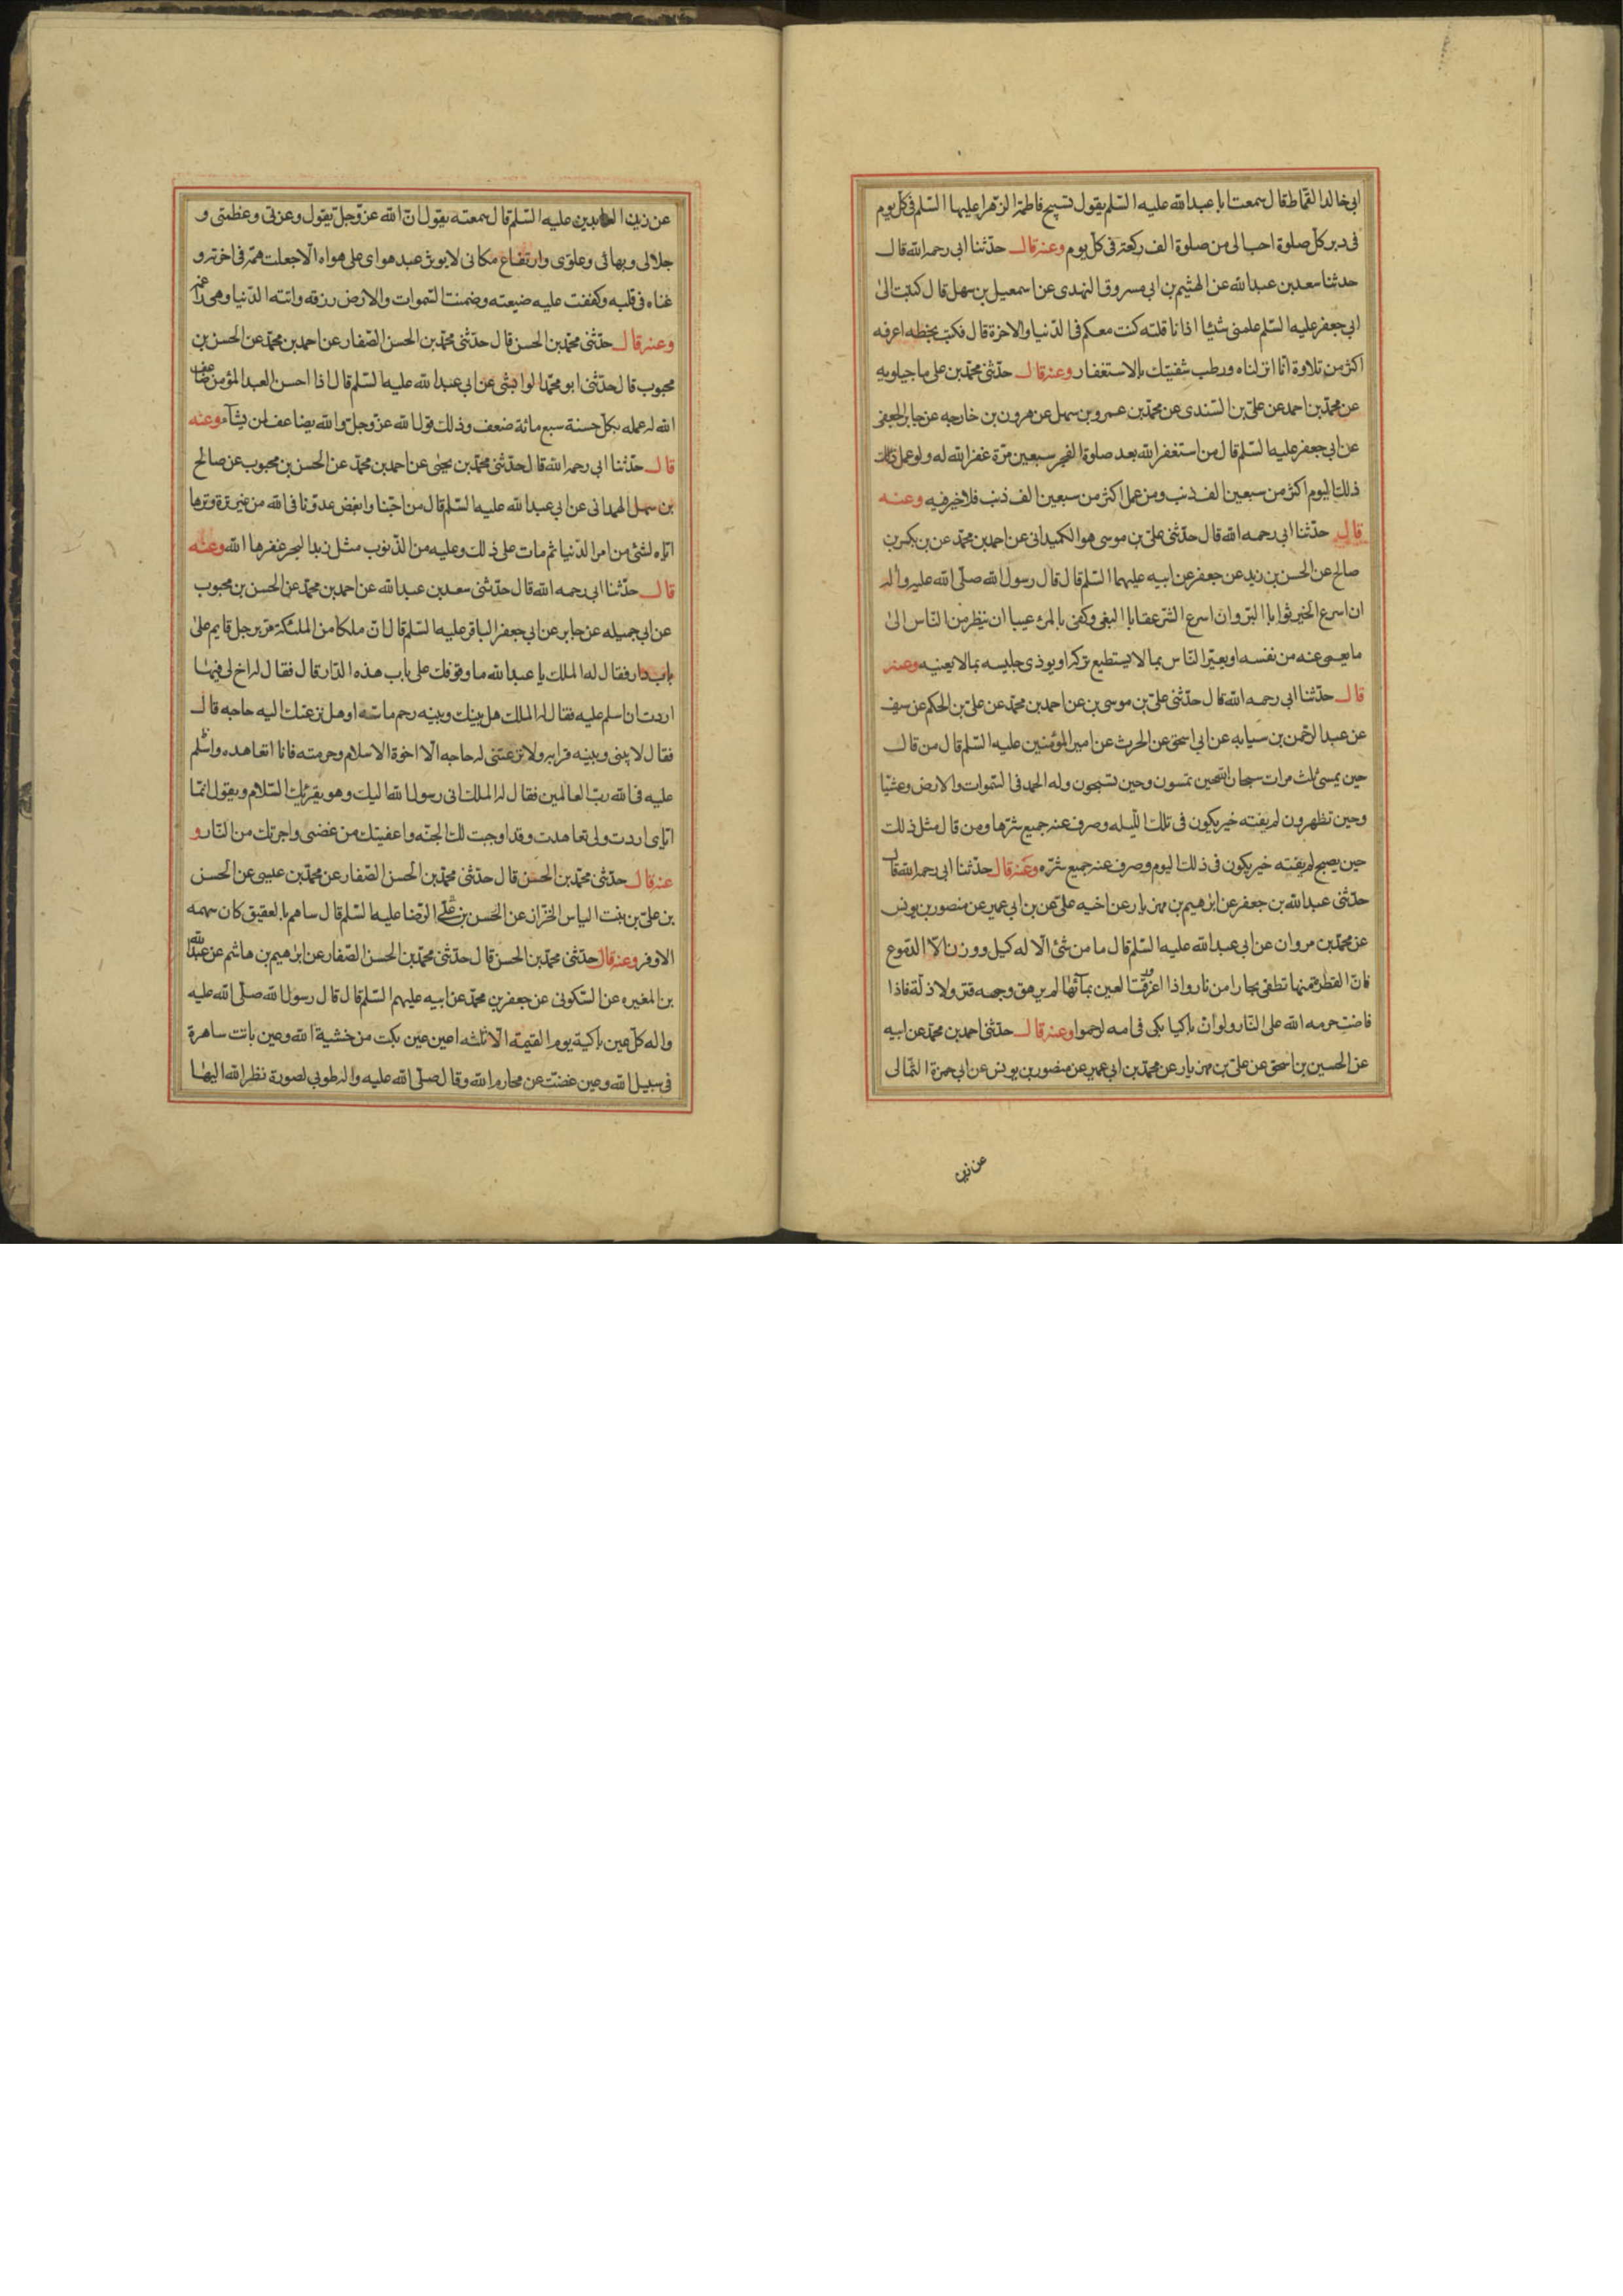 ابی خالد القماط قال سمعت ابا عبد الله علیه السلم یقول تسبیح فاطمة الزهرا علیها السلم فی کل یوم
فی دبر کل صلوة احب الی من صلوة الف رکعة فی کل یوم وعنه قال حدثنا ابی رحمه الله قال
حدثنا سعد بن عبد الله عن الهثیم بن ابی مسروق النهدی عن اسمعیل بن سهل قال کتبت الی
ابی جعفر علیه السلم علمنی شیئا اذا انا قلته کنت معکم فی الدنیا والاخرة قال فکتب بخطه اعرفه
اکثر من تلاوة انا انزلناه ورطب شفتیك بالاستغفار وعنه قال حدثنی محمد بن علی ماجیلویه
عن محمد بن احمد عن علی بن السندی عن محمد بن عمرو بن سهل عن هرون بن خارجه عن جابر الجعفی
عن ابی جعفر علیه السلم قال من استغفر الله بعد صلوة الفجر سبعین مرة غفر الله له ولو عمل
ذلك الیوم اکثر من سبعین الف ذنب ومن عمل اکثر من سبعین الف ذنب فلا خیر فیه وعنه
قال حدثنا ابی رحمه الله قال حدثنی علی بن موسی هو الکمیدانی عن احمد بن محمد عن بن بکر بن
صالح عن الحسن بن زید عن جعفر عن ابیه علیهما السلم قال قال رسول الله صلی الله علیه واله
ان اسرع الخیر ثوابا البر وان اسرع الشر عقابا البغی وکفی بالمرء عیبا ان ینظر من الناس الی
ما یعمی عنه من نفسه او یعیر الناس بما لا یستطیع ترکه او یوذی جلیسه بما لا یعنیه وعنه
قال حدثنا ابی رحمه الله قال حدثنی علی بن موسی بن عن احمد بن محمد عن علی بن الحکم عن سیف
عن عبد الرحمن بن سیابه عن ابی اسحق عن الحرث عن امیر المؤمنین علیه السلم قال من قال
حین یمسی ثلث مرات سبحان الله حین تمسون وحین تصبحون وله الحمد فی السموات والارض وعشیا
وحین تظهرون لم یفته خیر یکون فی تلك اللیله وصرف عنه جمیع شرها ومن قال مثل ذلك
حین یصبح لم یفته خیر یکون فی ذلك الیوم وصرف عنه جمیع شره وعنه قال حدثنا ابی رحمه الله قال
حدثنی عبد الله بن جعفر عن ابرهیم بن مهزیار عن اخیه علی عن بن ابی عمیر عن منصور بن یونس
عن محمد بن مروان عن ابی عبد الله علیه السلم قال ما من شئ الا له کیل ووزن الا الدموع
فان القطرة منها تطفی بحارا من نار واذا اغرورقت العین بمائها لم یرهق وجهه قتر ولا ذلة فاذا
فاضت حرمه الله علی النار ولو ان باکیا بکی فی امه لرحموا وعنه قال حدثنی احمد بن محمد عن ابیه
عن الحسین بن اسحق عن علی بن مهزیار عن محمد بن ابی عمیر عن منصور بن یونس عن ابی حمزة الثمالی
عن زین
عن زین العابدین علیه السلم قال سمعته یقول ان الله عز وجل یقول وعزتی وعظمتی و
جلالی وبهائی وعلوی وارتفاع مکانی لا یوثر عبد هوای علی هواه الا جعلت همه فی اخرته و
غناه فی قلبه وکففت علیه ضیعته وضمنت السموات والارض رزقه واتته الدنیا وهی راغمه
وعنه قال حدثنی محمد بن الحسن قال حدثنی محمد بن الحسن الصفار عن احمد بن محمد عن الحسن بن
محبوب قال حدثنی ابو محمد الوابشی عن ابی عبد الله علیه السلم قال اذا احسن العبد المؤمن ضاعف
الله له عمله بکل حسنة سبع مائة ضعف وذلك قول الله عز وجل والله یضاعف لمن یشآء وعنه
قال حدثنا ابی رحمه الله قال حدثنی محمد بن یحیی عن احمد بن محمد عن الحسن بن محبوب عن صالح
بن سهل الهمدانی عن ابی عبد الله علیه السلم قال من احبنا وابغض عدونا فی الله من غیر ترة وترها
ایاه لشئ من امر الدنیا ثم مات علی ذلك وعلیه من الذنوب مثل زبد البحر غفرها الله وعنه
قال حدثنا ابی رحمه الله قال حدثنی سعد بن عبد الله عن احمد بن محمد عن الحسن بن محبوب
عن ابی جمیله عن جابر عن ابی جعفر الباقر علیه السلم قال ان ملکا من الملئکة مر برجل قایم علی
باب دار فقال له الملك یا عبد الله ما وقوفك علی باب هذه الدار قال فقال له اخ لی فیها
اردت ان اسلم علیه فقال له الملك هل بینك وبینه رحم ماسة او هل نزعتك الیه حاجه قال
فقال لا بینی وبینه قرابه ولا نزعتنی له حاجه الا اخوة الاسلام وحرمته فانا اتعاهده واسلم
علیه فی الله رب العالمین فقال له الملك انی رسول الله الیك وهو یقرئك السلام ویقول انما
ایای اردت ولی تعاهدت وقد اوجبت لك الجنه واعفیتك من غضبی واجرتك من النار و
عنه قال حدثنی محمد بن الحسن قال حدثنی محمد بن الحسن الصفار عن محمد بن عیسی عن الحسن
بن علی بن بنت الیاس الخزاز عن الحسن بن علی الرضا علیه السلم قال ساهم بالعقیق کان سهمه
الاوفر وعنه قال حدثنی محمد بن الحسن قال حدثنی محمد بن الحسن الصفار عن ابرهیم بن هاشم عن عبد الله
بن المغیره عن السکونی عن جعفر بن محمد عن ابیه علیهم السلم قال قال رسول الله صلی الله علیه
واله کل عین باکیة یوم القیمة الا ثلثه اعین عین بکت من خشیة الله وعین باتت ساهرة
فی سبیل الله وعین غضت عن محارم الله وقال صلی الله علیه واله طوبی لصورة نظر الله الیها